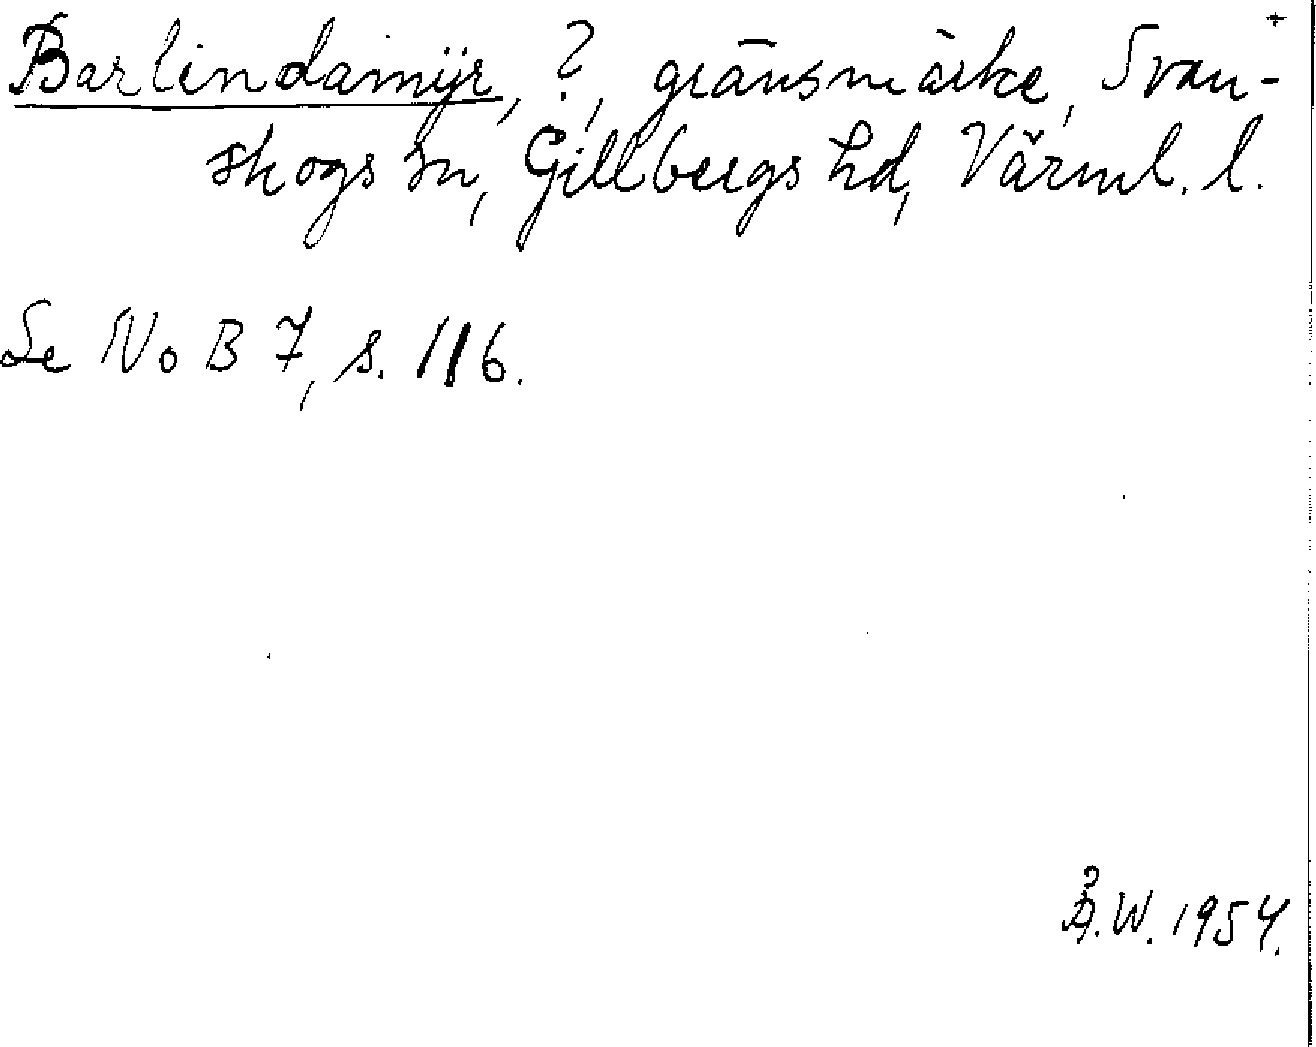 Barlindamÿr, ?, gränsmärke, Svan- +
skogs sn, Gillbergs hd, Värml. l.
Se NoB 7, s. 116.
Å.W. 1954.